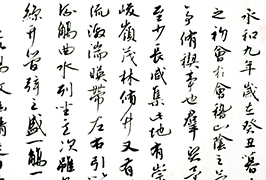 永和九年歲在癸丑暮
之初會于會稽山陰之
亭脩禊事也羣賢
至少長咸集此地有崇
峻嶺茂林脩竹又有
流激湍暎帶左右引以
流觴曲水列坐其次雖
絲竹管弦之盛一觴一